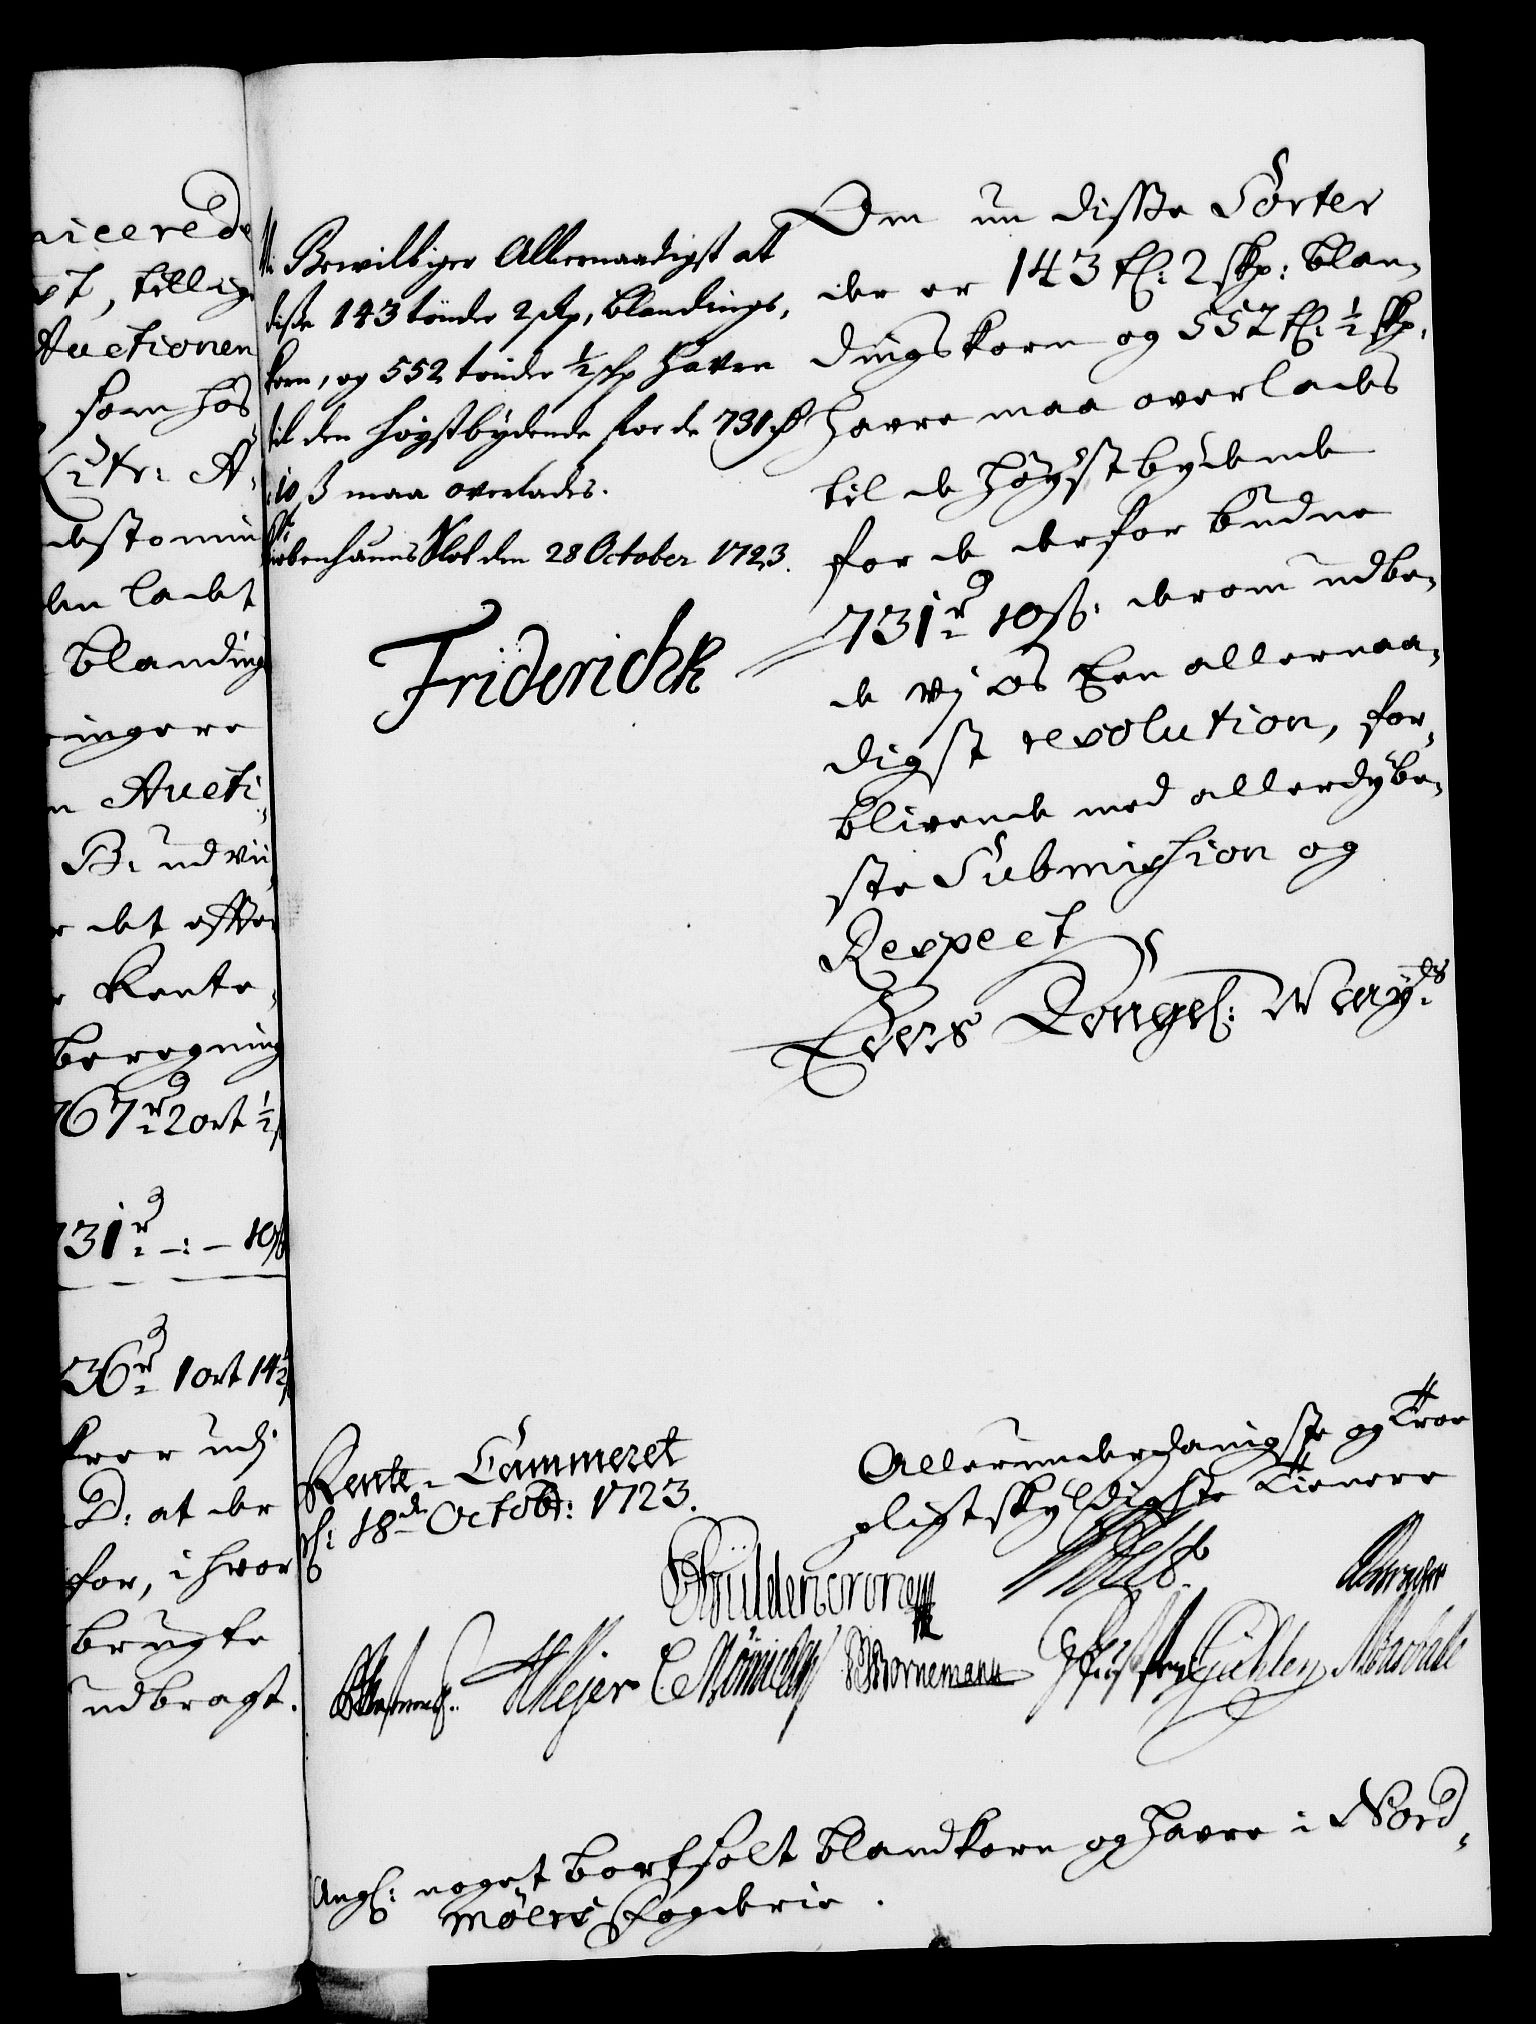 icerede
t, tillige
Auctionen
som hos
Cutr: A.
destomin
den ladet
blanding
ringere
n Aucti,
B: udvii,
r det effter
Rente,
beregning
767 rd 2 ort ½
731 rd -:- 10ß
36 rd 1 ort 14½
krer udj
D: at der
for, i hvor
brugte
udbragt.
Vi Bewilliger Allernaadigst at
disse 143 tönder 2 skp, blandings,
korn, og 552 tönder ½ skp havre
til den höystbydende for de 731 rd
10 ß maa overlades.
Kiöbenhaunß Slot den 28 October 1723.
Friderichk
Om nu disse Sorter
der er 143 tl: 2 skp: blan,
dingskorn og 552 tl: ½ skp.
Havre maa overlades
til de Høystbydende
for de derfor budne
731 rd 10ß: derom udbe,
de vj os Een allernaa,
digst resolution, for,
blivende med allerdybe,
ste Submission og
Respect
Eders Kongel: Mayts
Rente-Cammeret
d: 18de Octobr: 1723.
Allerunderdanigste og Troe
pligtskyldigste Tienere
Güldencrone
CMeyer
Bornemann
Angl: noget bortsolt blandkorn og Havre i Nord,
möers fogderie.